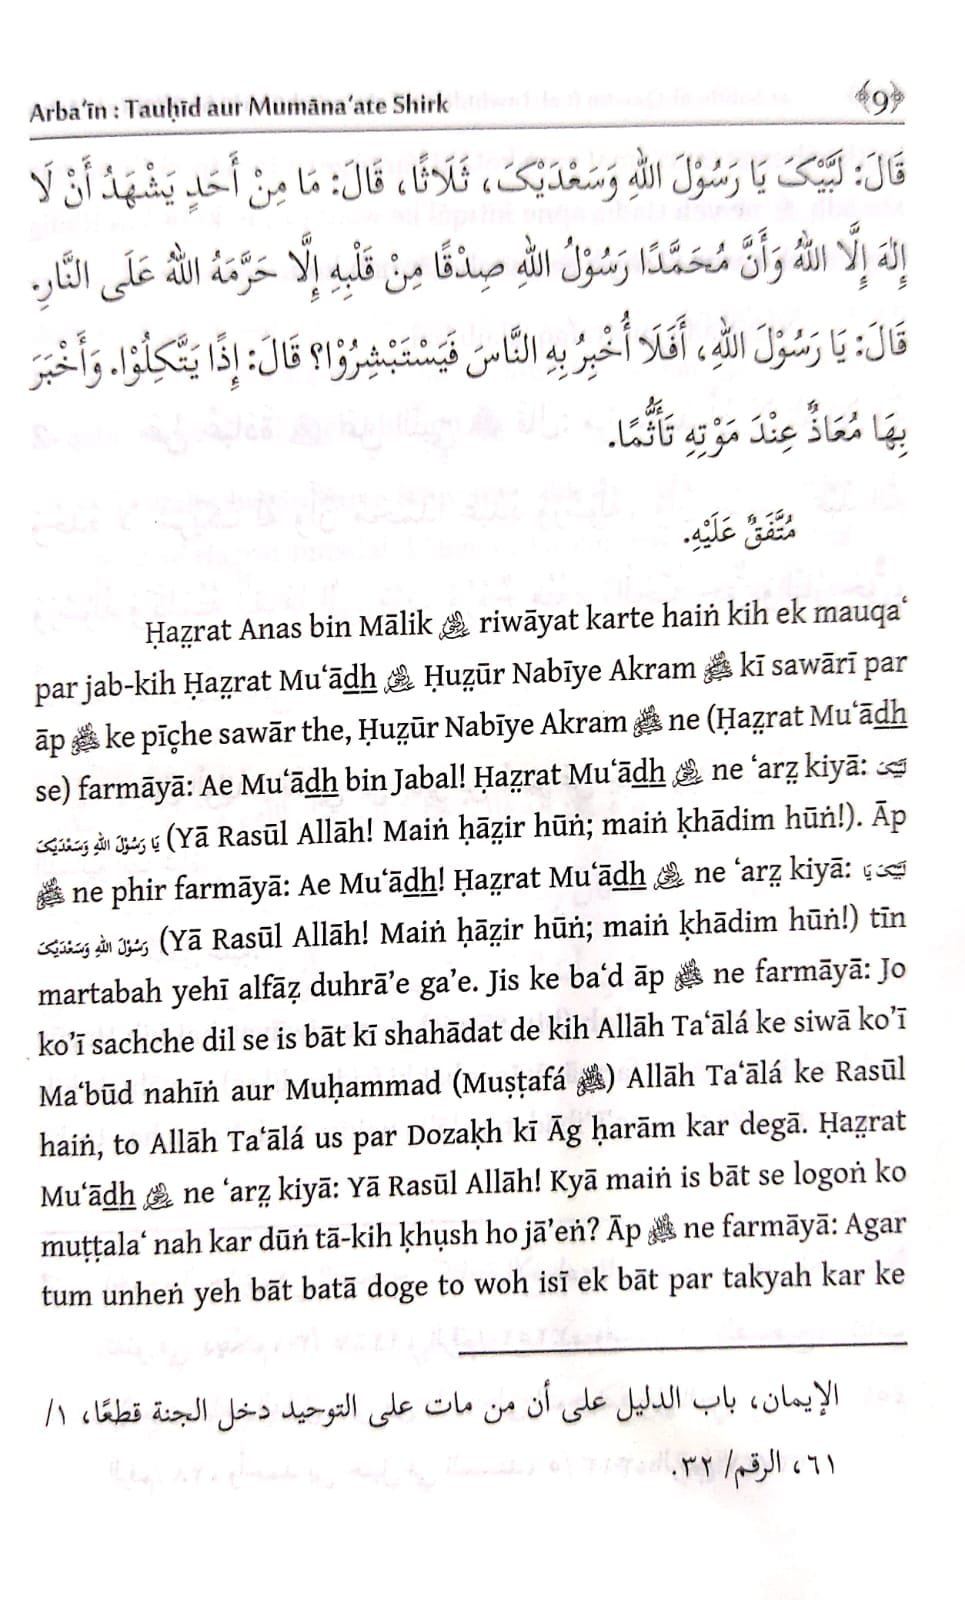 Arba‘īn : Tauḥīd aur Mumāna‘ate Shirk ﴾9﴿
قَالَ: لَبَّيْکَ يَا رَسُوْلَ اللهِ وَسَعْدَيْکَ، ثَلَاثًا، قَالَ: مَا مِنْ أَحَدٍ يَشْهَدُ أَنْ لَا
إِلٰهَ إِلَّا اللهُ وَأَنَّ مُحَمَّدًا رَسُوْلُ اللهِ صِدْقًا مِنْ قَلْبِهِ إِلَّا حَرَّمَهُ اللهُ عَلَى النَّارِ.
قَالَ: يَا رَسُوْلَ اللهِ، أَفَلَا أُخْبِرُ بِهِ النَّاسَ فَيَسْتَبْشِرُوْا؟ قَالَ: إِذًا يَتَّكِلُوْا. وَأَخْبَرَ
بِهَا مُعَاذٌ عِنْدَ مَوْتِهِ تَأَثُّمًا.
مُتَّفَقٌ عَلَيْهِ.
Ḥaz̤rat Anas bin Mālik ؓ riwāyat karte haiṅ kih ek mauqa‘
par jab-kih Ḥaz̤rat Mu‘ādh ؓ Ḥuz̤ūr Nabīye Akram ﷺ kī sawārī par
āp ﷺ ke pīçhe sawār the, Ḥuz̤ūr Nabīye Akram ﷺ ne (Ḥaz̤rat Mu‘ādh
se) farmāyā: Ae Mu‘ādh bin Jabal! Ḥaz̤rat Mu‘ādh ؓ ne ‘arz̤ kiyā: لَبَّيْکَ
يَا رَسُوْلَ اللهِ وَسَعْدَيْکَ (Yā Rasūl Allāh! Maiṅ ḥāz̤ir hūṅ; maiṅ ḳhādim hūṅ!). Āp
ﷺ ne phir farmāyā: Ae Mu‘ādh! Ḥaz̤rat Mu‘ādh ؓ ne ‘arz̤ kiyā: لَبَّيْکَ يَا
رَسُوْلَ اللهِ وَسَعْدَيْکَ (Yā Rasūl Allāh! Maiṅ ḥāz̤ir hūṅ; maiṅ ḳhādim hūṅ!) tīn
martabah yehī alfāẓ duhrā’e ga’e. Jis ke ba‘d āp ﷺ ne farmāyā: Jo
ko’ī sachche dil se is bāt kī shahādat de kih Allāh Ta‘ālá ke siwā ko’ī
Ma‘būd nahīṅ aur Muḥammad (Muṣṭafá ﷺ) Allāh Ta‘ālá ke Rasūl
haiṅ, to Allāh Ta‘ālá us par Dozaḳh kī Āg ḥarām kar degā. Ḥaz̤rat
Mu‘ādh ؓ ne ‘arz̤ kiyā: Yā Rasūl Allāh! Kyā maiṅ is bāt se logoṅ ko
muṭṭala‘ nah kar dūṅ tā-kih ḳhụsh ho jā’eṅ? Āp ﷺ ne farmāyā: Agar
tum unheṅ yeh bāt batā doge to woh isī ek bāt par takyah kar ke
الإيمان، باب الدليل على أن من مات على التوحيد دخل الجنة قطعًا، ١/
٦١، الرقم/ ٣٢.